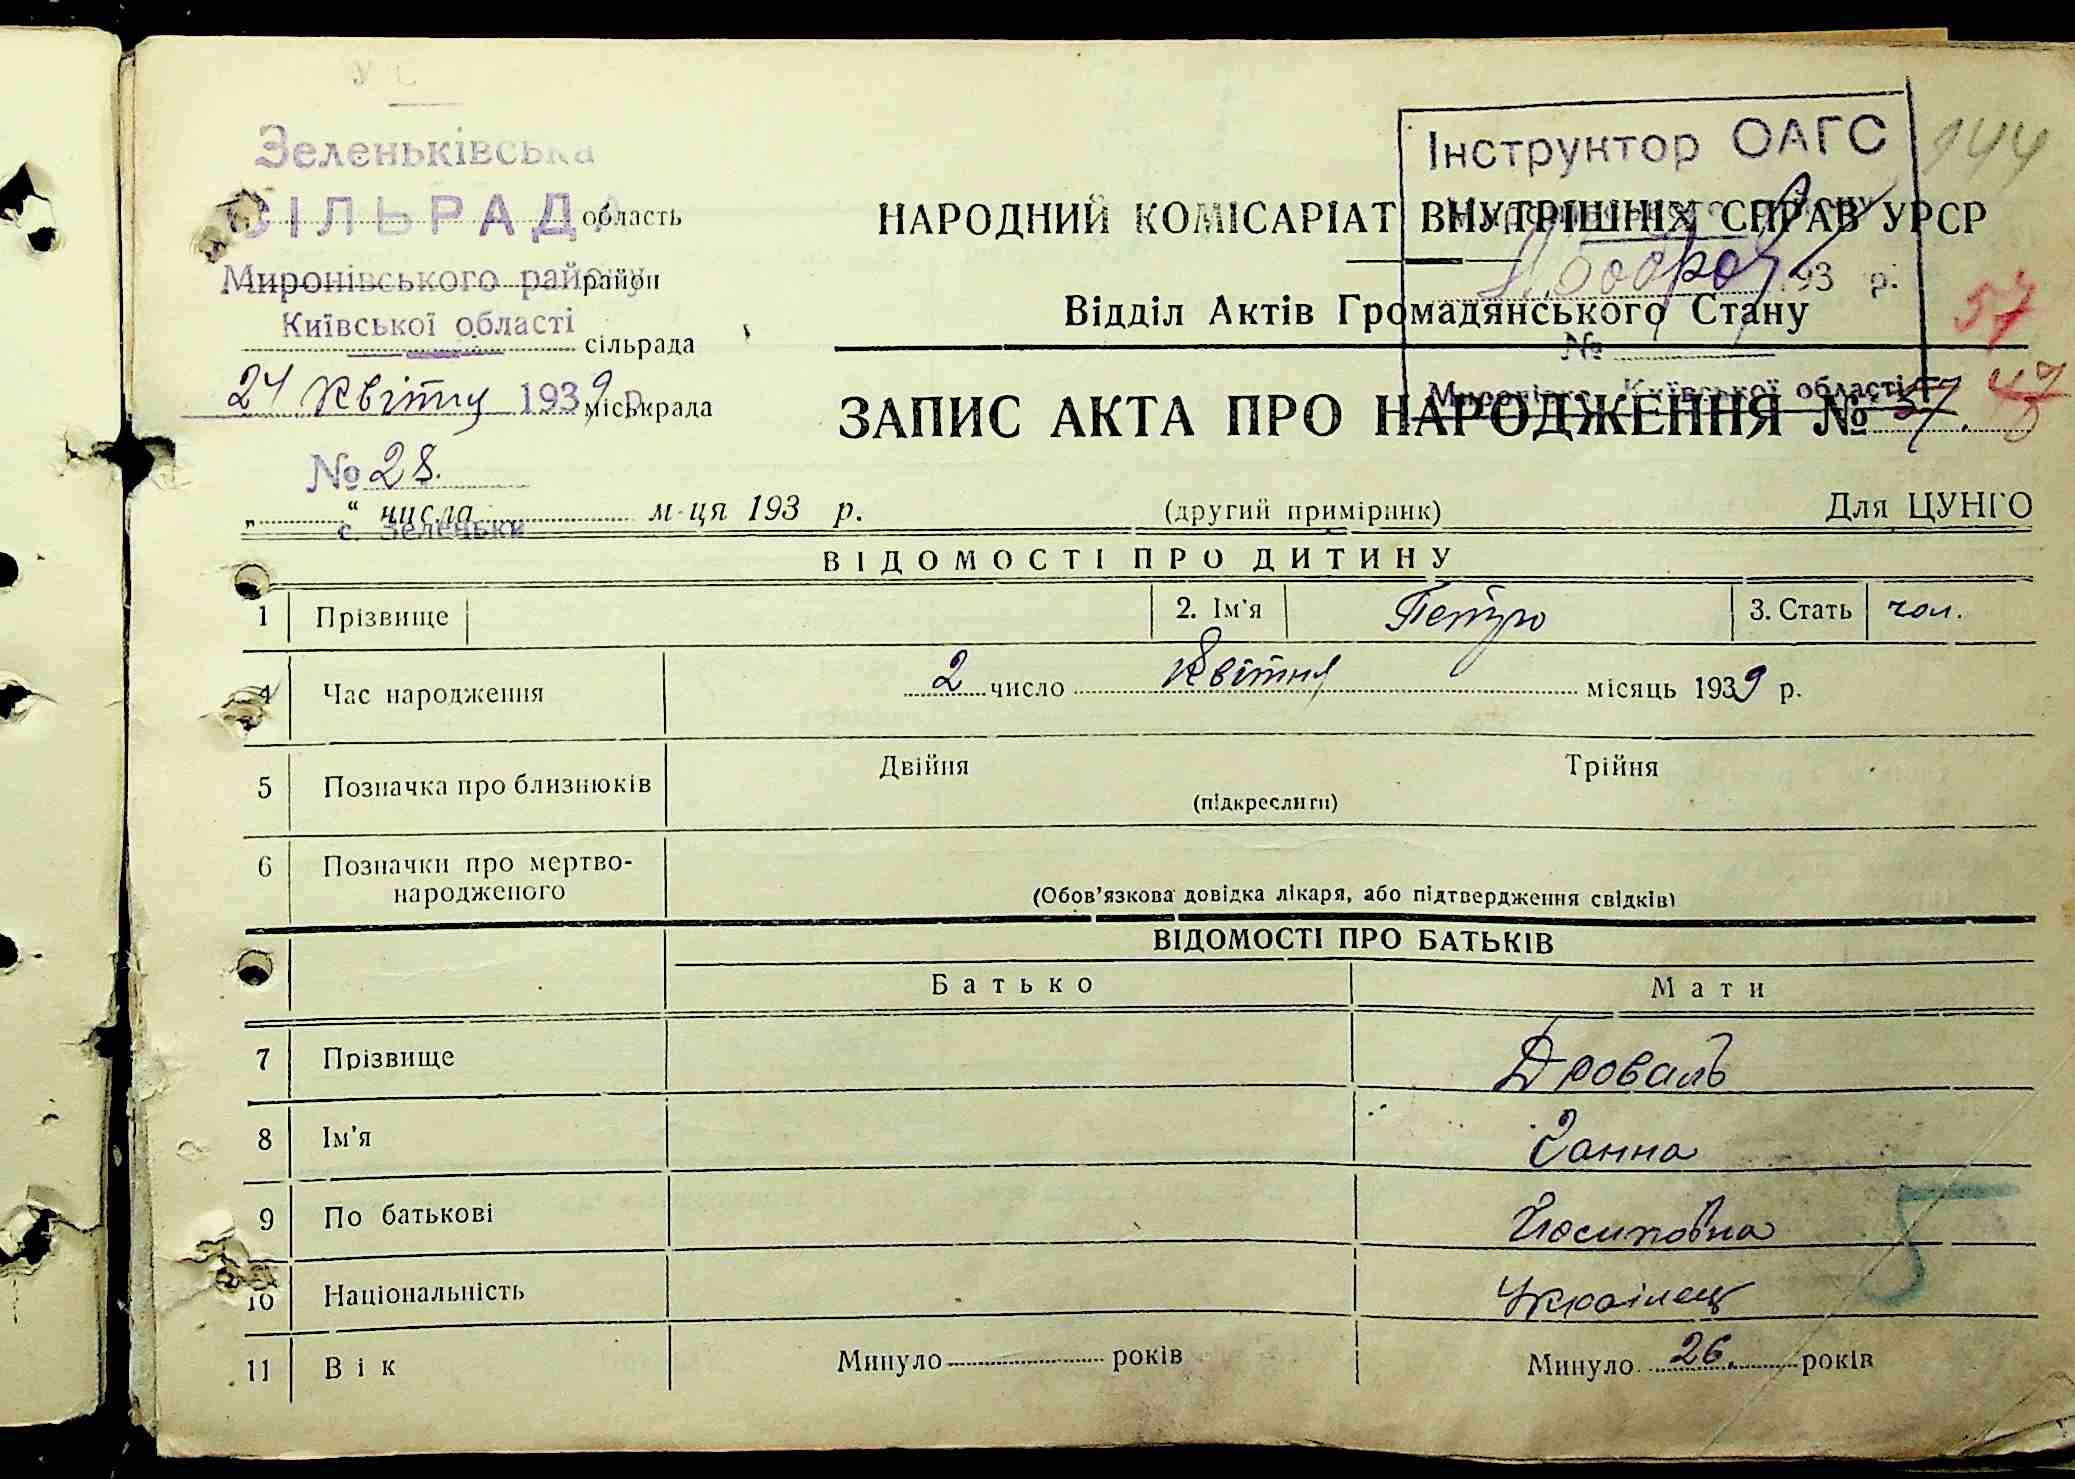 Зеленьківська
СІЛЬРАДА область
Миронівського району район
Київської області
сільрада
24 квітня 1939 р. міськрада
№ 28.
с. Зеленьки
„ “ числа м-ця 193 р.
Інструктор ОАГС
193 р.
№
Миронівка, Київської області
144
НАРОДНИЙ КОМІСАРІАТ ВНУТРІШНІХ СПРАВ УРСР
Відділ Актів Громадянського Стану
57
47
ЗАПИС АКТА ПРО НАРОДЖЕННЯ № 57.
(другий примірник)
Для ЦУНГО
ВІДОМОСТІ ПРО ДИТИНУ
1 Прізвище 2. Ім'я Петро 3. Стать чол.
4 Час народження 2 число Квітня місяць 1939 р.
5 Позначка про близнюків Двійня Трійня
(підкреслити)
6 Позначки про мертво-
народженого
(Обов'язкова довідка лікаря, або підтвердження свідків)
ВІДОМОСТІ ПРО БАТЬКІВ
Батько Мати
7 Прізвище Дроваль
8 Ім'я Ганна
9 По батькові Йосиповна
10 Національність Українець
5
11 Вік Минуло років Минуло 26. років